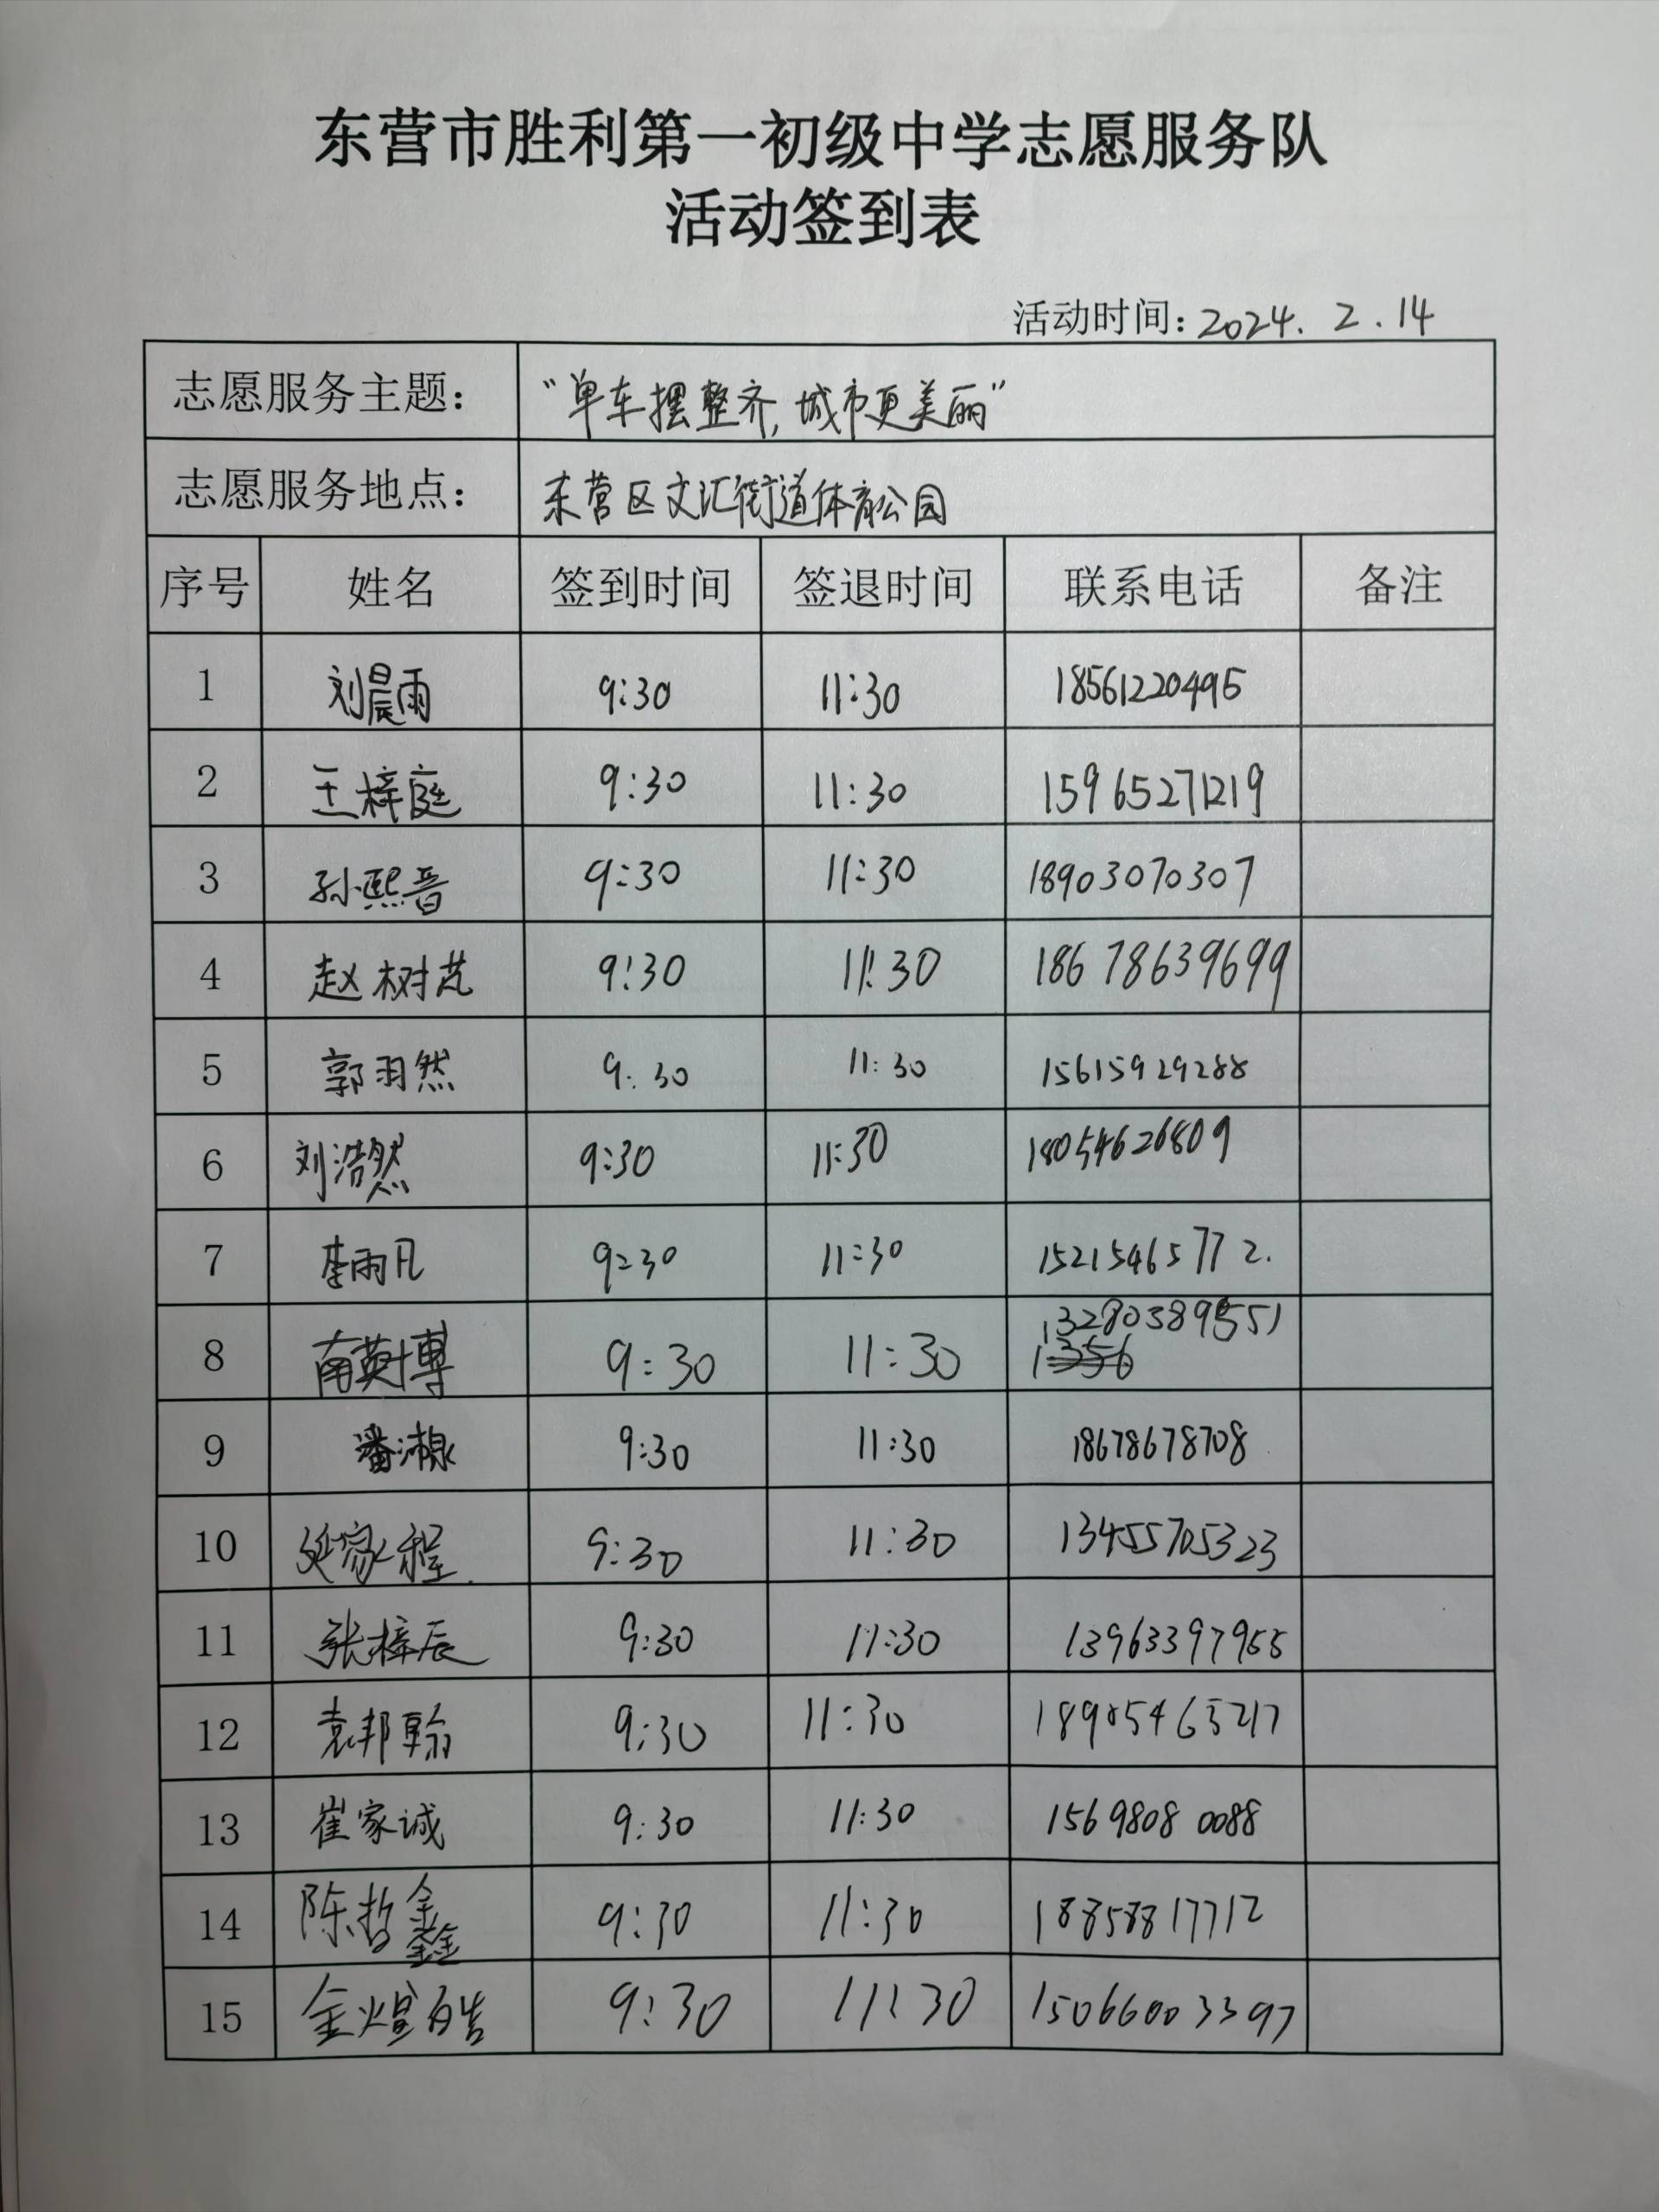 东营市胜利第一初级中学志愿服务队
活动签到表
活动时间：2024.2.14
志愿服务主题： “单车摆整齐,城市更美丽”
志愿服务地点： 东营区文汇街道体育公园
序号 姓名 签到时间 签退时间 联系电话 备注
1 刘晨雨 9:30 11:30 18561220495
2 王梓庭 9:30 11:30 15965271219
3 孙熙晋 9:30 11:30 18903070307
4 赵树芃 9:30 11:30 18678639699
5 郭羽然 9:30 11:30 15615929288
6 刘浩然 9:30 11:30 18054626809
7 李雨凡 9:30 11:30 15215465772.
8 南英博 9:30 11:30 13280389551
9 潘湘泉 9:30 11:30 18678678708
10 延家程 9:30 11:30 13455705323
11 张梓辰 9:30 11:30 13963397955
12 袁邦翰 9:30 11:30 18905465217
13 崔家诚 9:30 11:30 15698080088
14 陈哲鑫 9:30 11:30 18858817712
15 金煊皓 9:30 11:30 15066003397